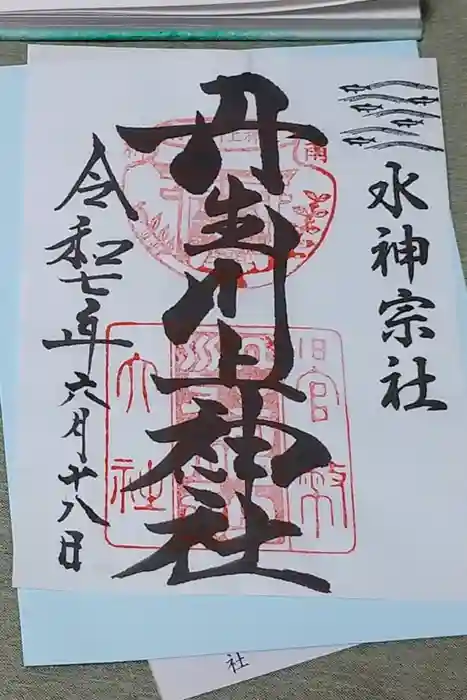 水神宗社
丹生川上神社
令和七年六月十八日
旧官幣
大社
社